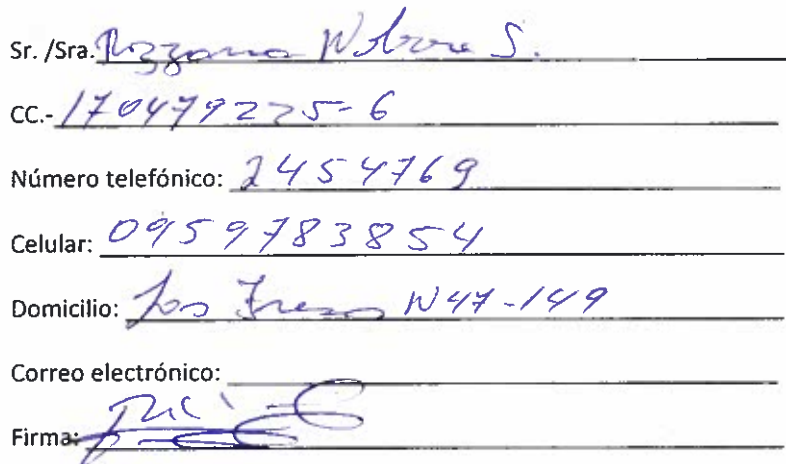 Sr. /Sra. S.
CC.- 170479225-6
Número telefónico: 2454769
Celular: 0959783854
Domicilio: Los Fresnos N47-149
Correo electrónico:
Firma: